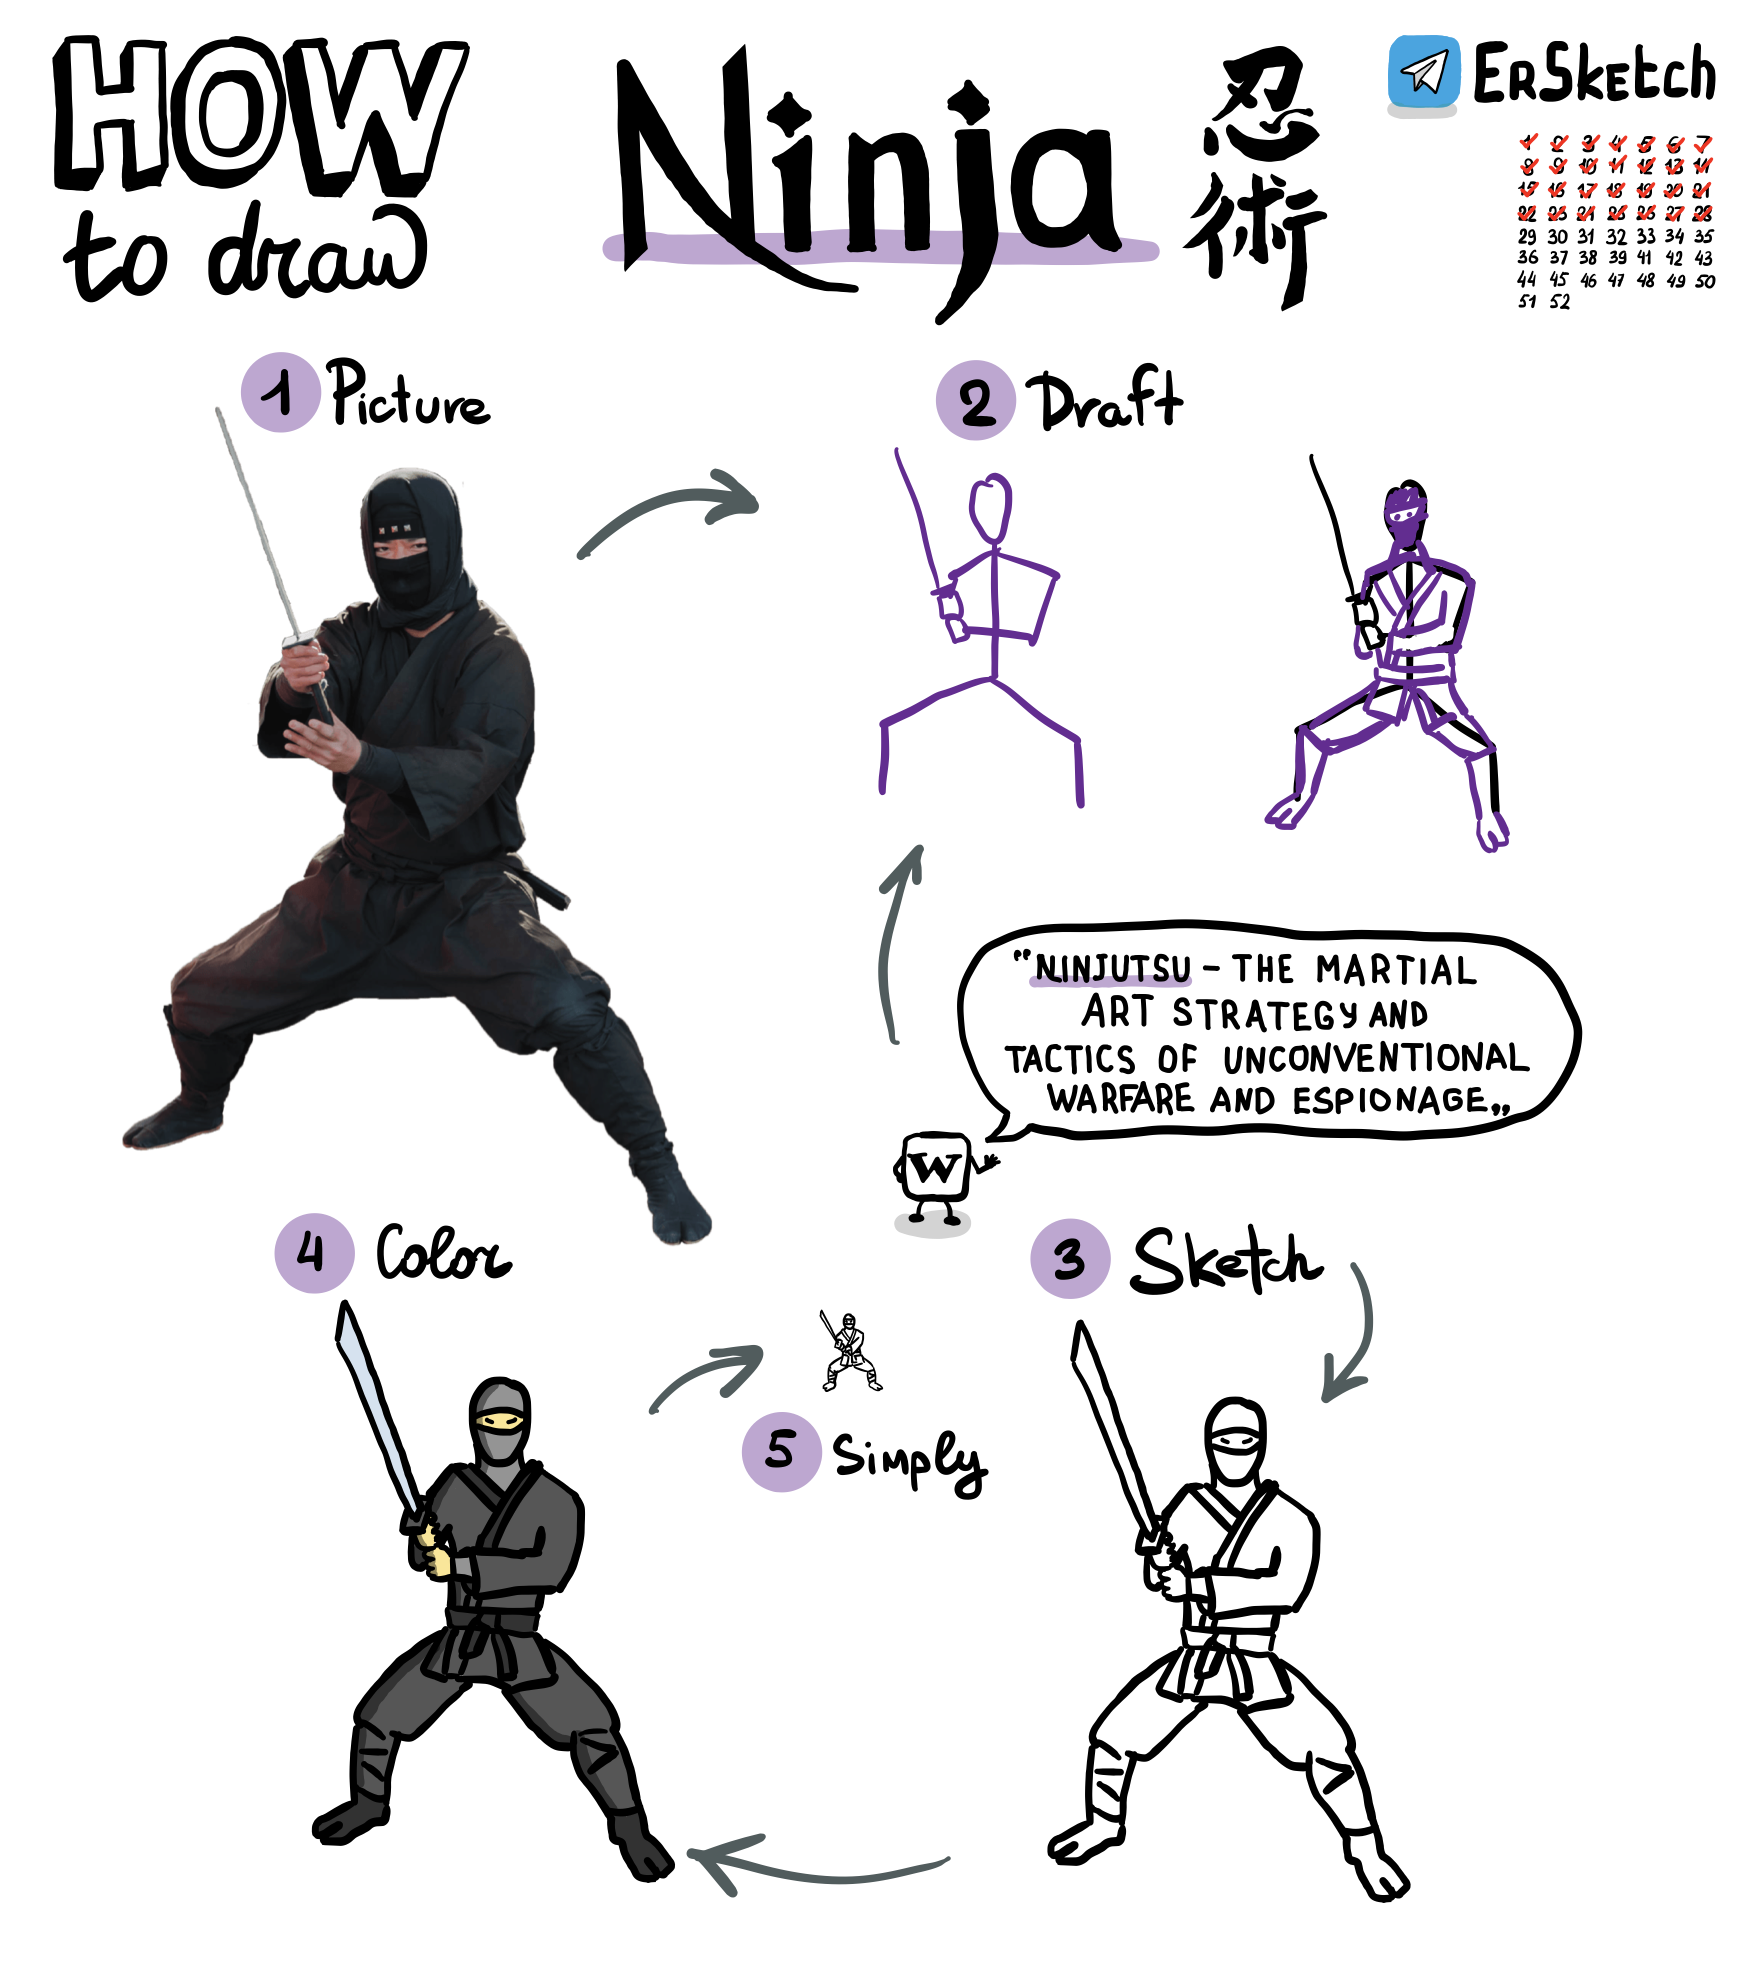 HOW
to draw
Ninja
忍
術
ErSketch
1 2 3 4 5 6 7
8 9 10 11 12 13 14
15 16 17 18 19 20 21
22 23 24 25 26 27 28
29 30 31 32 33 34 35
36 37 38 39 41 42 43
44 45 46 47 48 49 50
51 52
1 Picture
2 Draft
"NINJUTSU - THE MARTIAL
ART STRATEGY AND
TACTICS OF UNCONVENTIONAL
WARFARE AND ESPIONAGE„
W
4 Color
3 Sketch
5 Simply